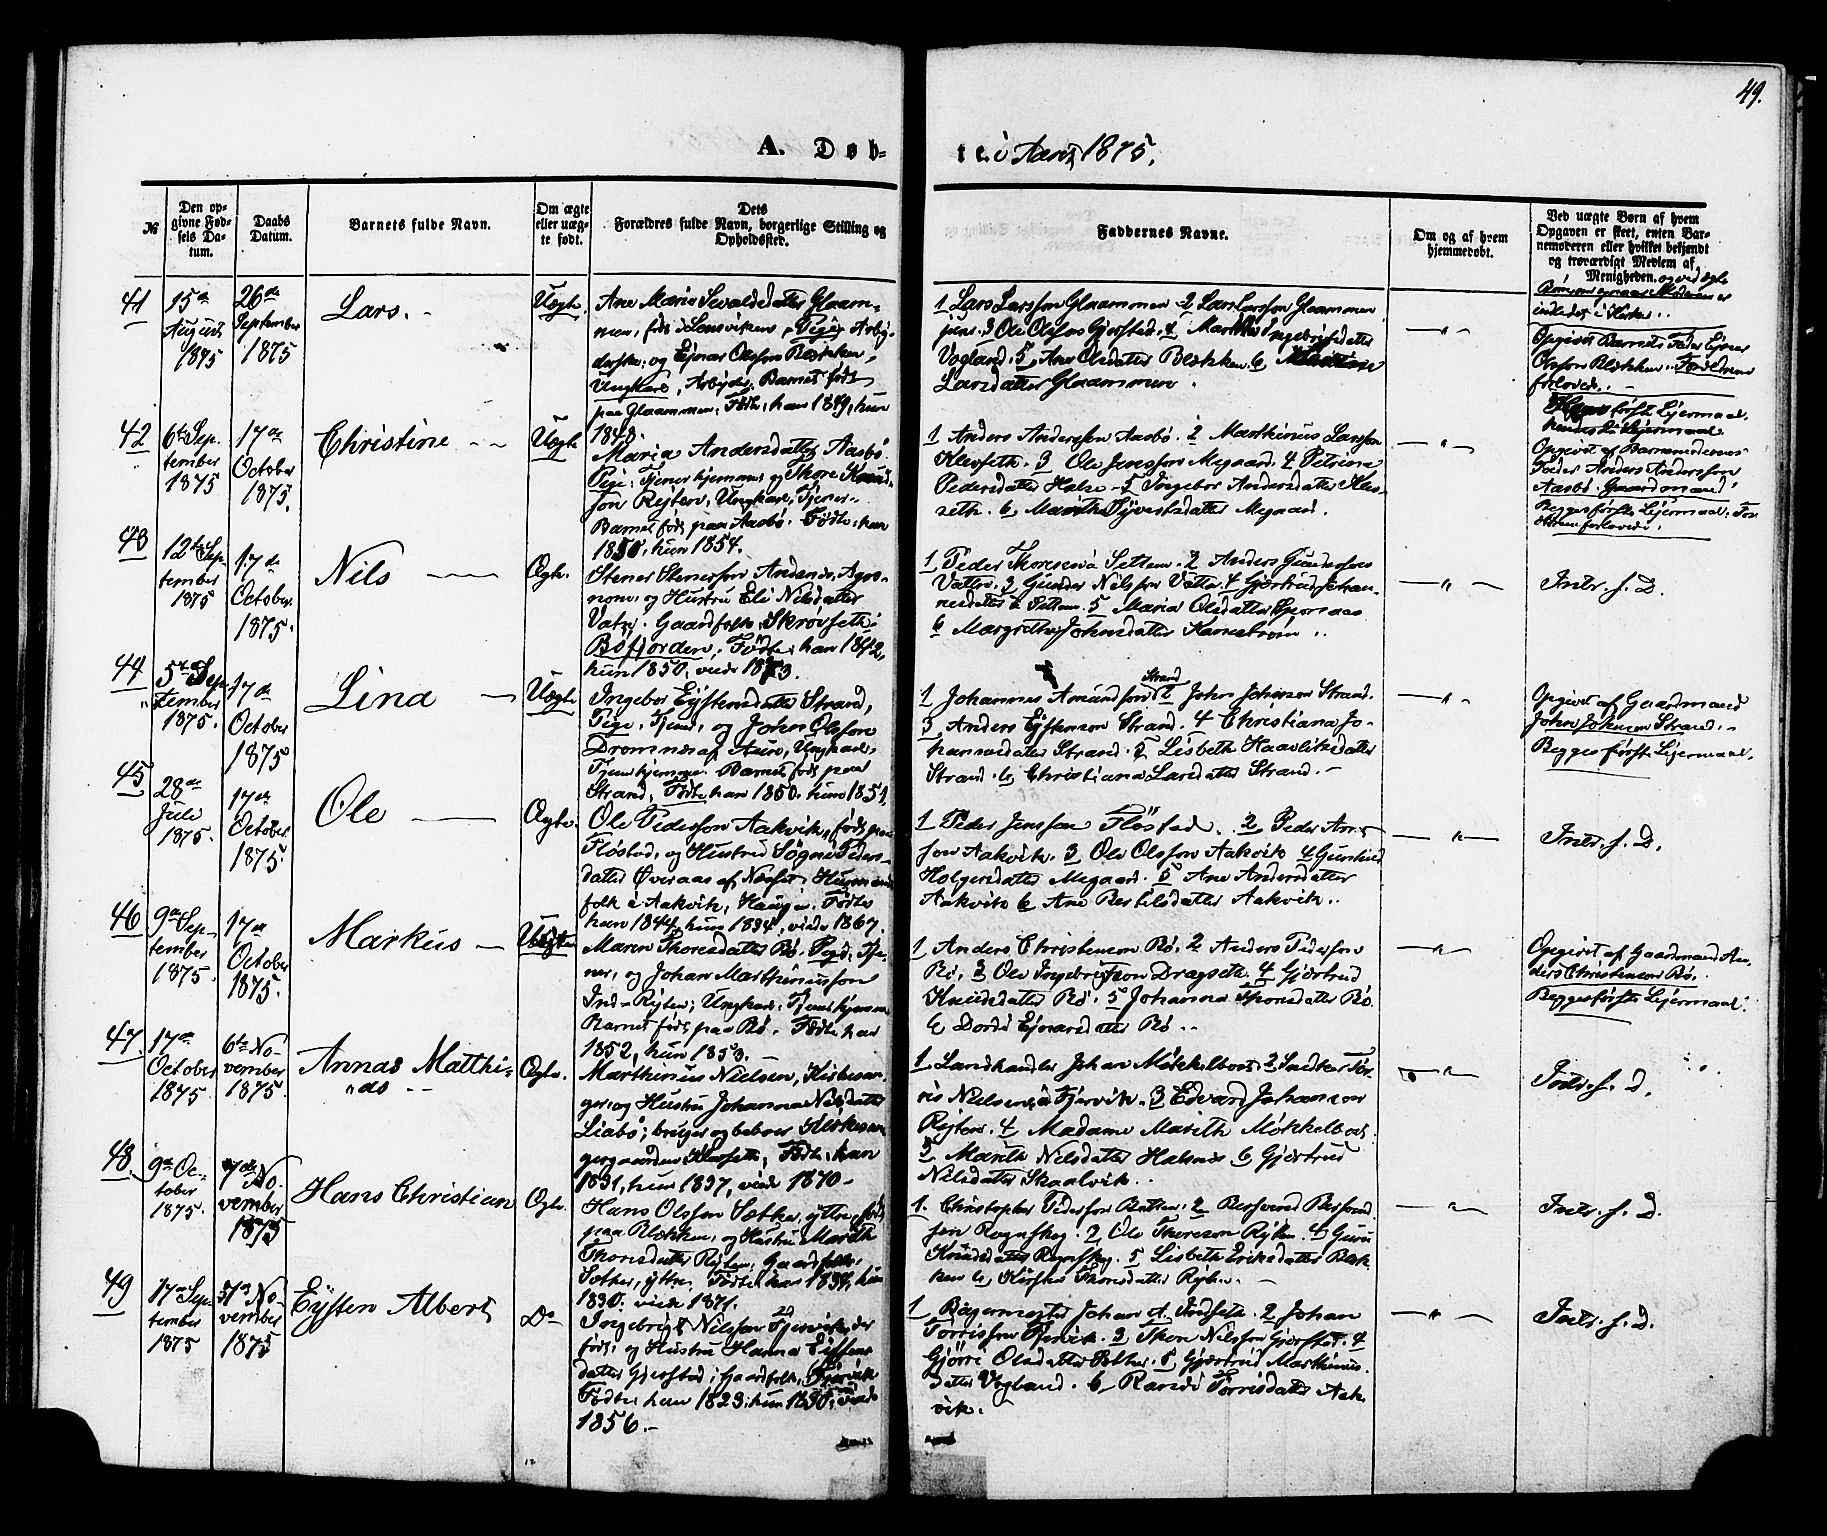 49.
A. Døb-
te i Aaret 1875.
№
Den op-
givne Fød-
sels Da-
tum.
Daabs
Datum.
Barnets fulde Navn.
Om ægte
eller uæg-
te født.
Dets
Forældres fulde Navn, borgerlige Stilling og
Opholdssted.
Faddernes Navne.
Om og af hvem
hjemmedøbt.
Ved uægte Børn af hvem
Opgaven er skeet, enten Bar-
nemoderen eller hvilket bekjendt
og troværdigt Medlem af
Menigheden.
41
15de
August
1875
26de
September
1875
Lars.
Uægte.
Ane Maria Sevaldsdatter Glaam-
men, født i Lensviken, Pige, Arbej-
derske, og Ejnar Olsson Blekken,
Ungkarl, Arbejder. Barnet født
paa Glaammen. Fødte: han 1849, hun
1 Lars Larsson Glaammen 2 Lars Larsson Glaammen
3 Ole Olsson Gjersted. 4 Ingebrigtsdatter
Vogland. 5 Ane Olsdatter Blekken. 6
Larsdatter Glaammen.
Opgivet Barnets Fader Ejner
Olsson Blekken. Forældrene
forlovede.
42
6te Sep-
tember
1875
17de
October
1875.
Christine
Uægte
Maria Andersdatter Aasbø.
Pige, Tjener hjemme, og Thore Knud-
son Røjten, Ungkarl, Tjener.
Barnet født paa Aasbø. Fødte: han
1850, hun 1854.
1 Anders Anderssen Aasbø. 2 Marthinus Larsson
Klevseth. 3 Ole Jensson Megaard. 4 Petrine
Pedersdatter Halse. 5 Ingebor Andersdatter Klev-
seth. 6 Marith Sivertsdatter Megaard.
første Lejermaal.
Opgivet af Barnemoderens
Fader Anders Andersson
Aasbø. Gaardmand.
Begges første Lejermaal.
43
12te Sep-
tember
1875
17de
October
1875.
Nils
Ægte.
Stener Stenersson Andenes, Agro-
nom, og Hustru Eli Nilsdatter
Vatn. Gaardfolk, Skrøvseth i
Bøfjorden. Fødte: han 1842,
hun 1850, viede 1873.
1 Peder Settem. 2 Anders Gundersen
Vatten. 3 Gunder Nilsson Vatten. 4 Gjertrud Johan-
nesdatter Settem. 5 Maria Olsdatter
6 Margrethe Johnsdatter Kanestrøm.
Intr. s. D.
44
5te Sep-
tember
1875.
17de
October
1875
Lina
Uægte
Ingebor Eystensdatter Strand,
Pige, Tjener, og John Olsson
Dromnes af Aure, Ungkarl,
Tjener hjemme. Barnet født paa
Strand. Fødte han 1850. hun 1851.
Strand
1 Johannes Amundson 2 John Johnson Strand.
3 Anders Eystenson Strand. 4 Christiana Jo-
hannesdatter Strand. 5 Lisbeth Haavliksdatter
Strand. 6 Christiana Larsdatter Strand.
Opgivet af Gaardmand
John Johnson Strand.
Begges første Lejermaal.
45
28de
Juli
1875.
17de
October
1875.
Ole
Ægte.
Ole Pedersson Aakvik, født paa
Fløstad, og Hustru Søgni Peders-
datter Øveraas af Nesset. Husmand-
folk i Aakvik, Haugen. Fødte
han 1844, hun 1834, viede 1867.
1 Peder Jensson Fløstad. 2 Peder Arne-
son Aakvik. 3 Ole Olsson Aakvik 4 Gunhild
Holgersdatter Megaard. 5 Ane Andersdatter
Aakvik 6 Ane Bertilsdatter Aakvik.
Intr. s. D.
46
9de Sep-
tember
1875.
17de
October
1875.
Markus
Uægte
Maren Thoresdatter Bø. Pige, Tje-
ner, og Johan Marthinusson
Ind-Røjten, Ungkarl, Tjener hjemme
Barnet født paa Bø. Fødte: han
1852, hun 1853.
1 Anders Christenson Bø. 2 Anders Pederson
Bø. 3 Ole Ingebrigtson Dragseth. 4 Gjertrud
Knudsdatter Bø. 5 Johanna Thoresdatter Bø.
6 Dordi Ejnarsdatter Bø.
Opgivet af Gaardmand An-
ders Christenson Bø.
Begges første Lejermaal.
47
17de
October
1875.
6te No-
vember
1875.
Annas Matthi-
as
Ægte.
Marthinus Nielsen, Kirkesan-
ger og Hustru Johanna Nilsdatter
Liabø; bruger og beboer Kirkesan-
gergaarden Klevseth. Fødte: han
1831, hun 1837, viede 1870.
1. Landhandler Johan Møkkelbost. 2 Snedker Tør-
ris Nielsen Fjervik. 3 Edvard Johanson
Røjten. 4 Madame Marith Møkkelbost.
5 Marith Nilsdatter Halsnes 6 Gjertrud
Nilsdatter Skaalvik.
Intr. s. D.
48.
9de Oc-
tober
1875.
7de No-
vember
1875
Hans Christian
Ægte.
Hans Olsson Sæther, yttre, født
paa Blekken, og Hustru Marith
Thoresdatter Røjten, Gaardfolk
Sæther, yttre. Fødte: han 1834, hun
1830. viede 1871.
1. Christopher Pedersson 2
Rognskog. 3 Ole Thoreson Røjten. 4 Guru
Knudsdatter Rognskog. 5 Lisbeth Eriksdatter Blek-
ken 6 Kirsten Thoresdatter Røjten.
Intr. s. D.
49
17de Sep-
tember
1875
No-
vember
1875
Eysten Albert
Do
Ingebrigt Nilsson Fjervik, der
født, og Hustru Hanna Eystens-
datter Gjersted; Gaardfolk, Fjervik
Fødte: han 1823, hun 1830, viede
1856.
1 Bøgermester Johan A. Indseth. 2 Johan
Tørrisson Fjervik. 3 Thore Nilsson Gjersted. 4
Gjørre Olsdatter Sæther. 5 Gjertrud Marthinus-
datter Vogland. 6 Randi Tørrisdatter Aak-
vik.
Intr. s. D.